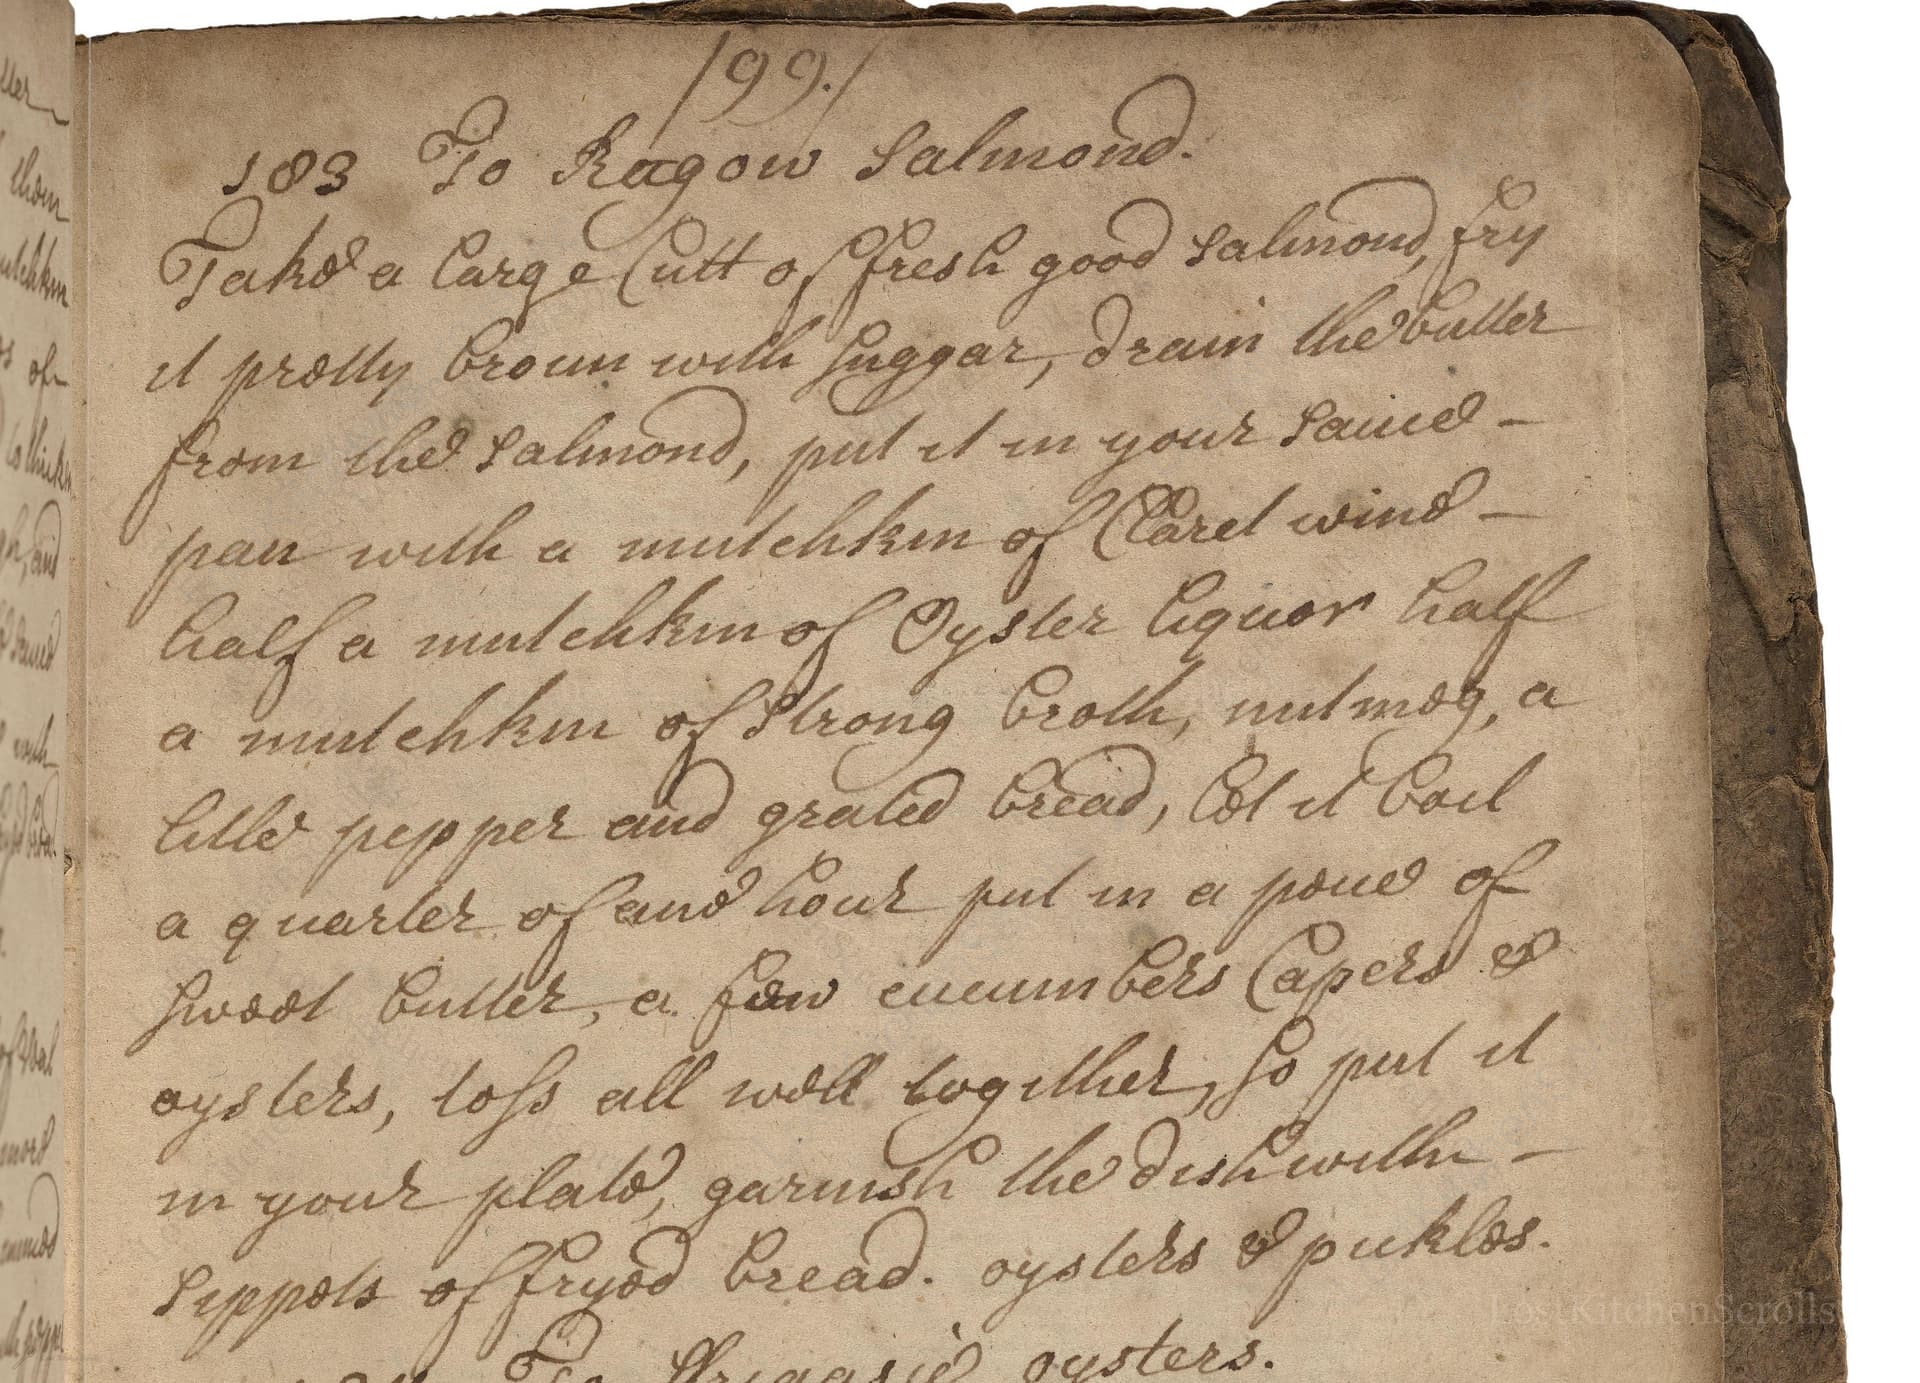 /99./
183 To Ragow Salmond.
Take a large Cutt of fresh good salmond, fry
it pretty broun with suggar, drain the butter
from the salmond, put it in your sauce-
pan with a mutchkin of Claret wine-
half a mutchkin of Oyster liquor half
a mutchkin of strong broth, nutmeg, a
litle pepper and grated bread, let it boil
a quarter of ane hour put in a peice of
sweet butter, a few cucumbers Capers &
oysters, toss all well together, so put it
in your plate, garnish the dish with-
sippets of fryed bread. oysters & pickles.
To oysters.
LostKitchenScrolls